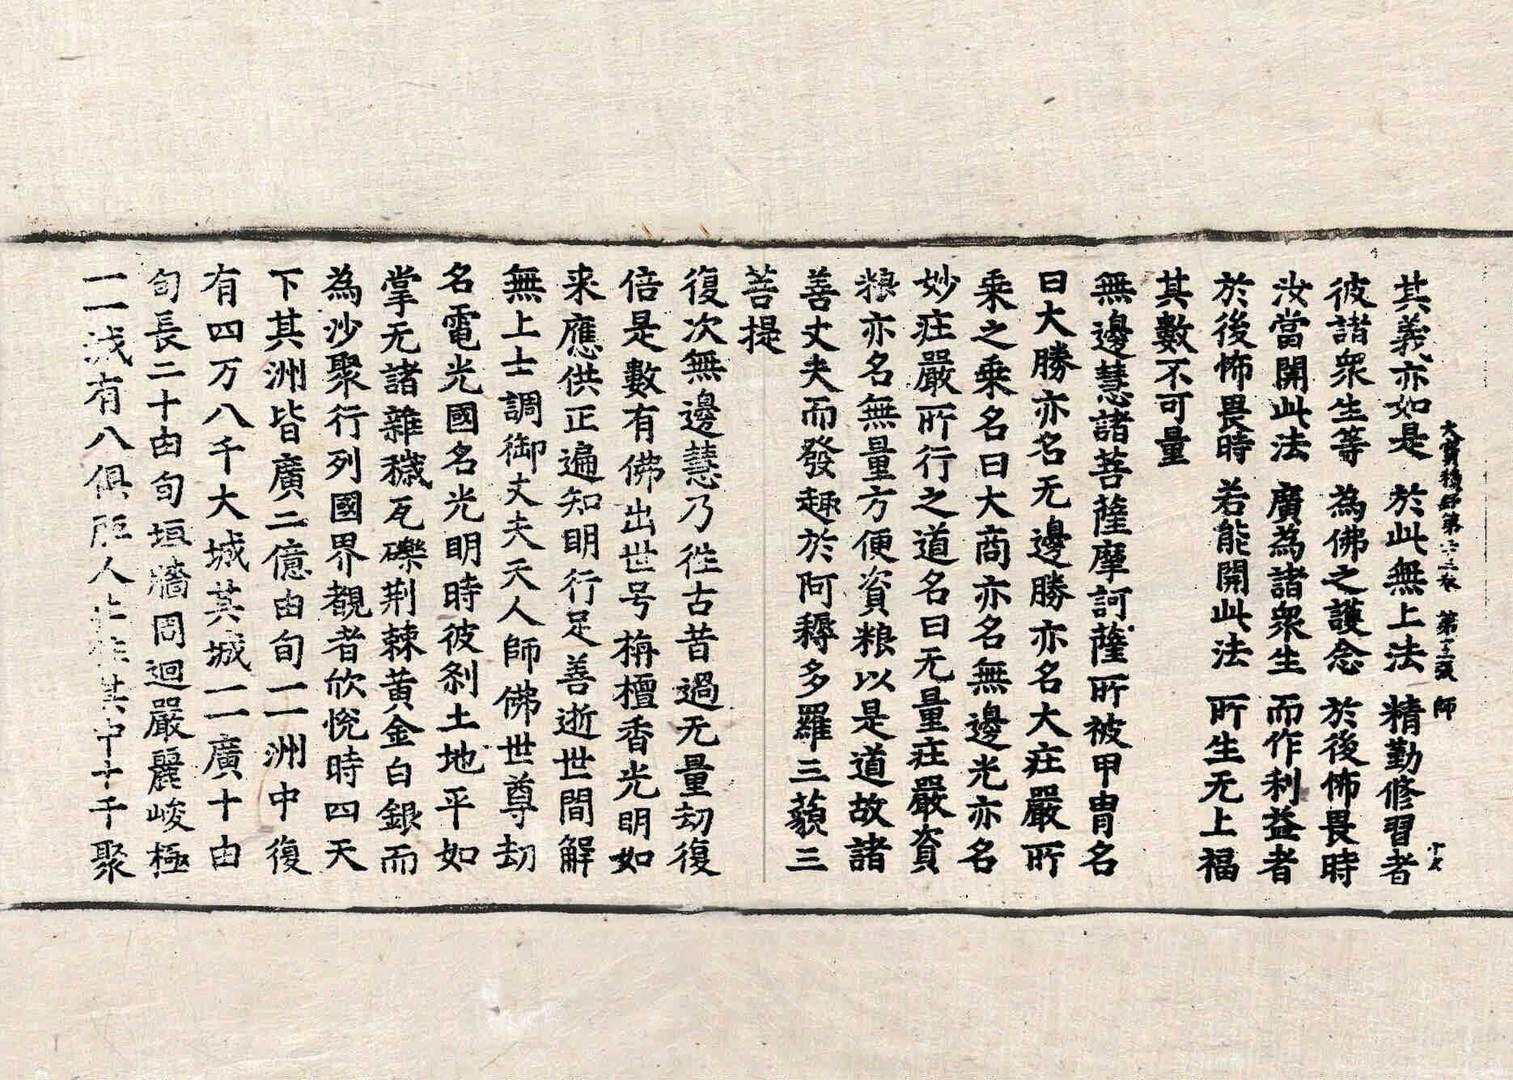 大寶積經第廿三卷 第十三張 師
其義亦如是 於此無上法 精勤修習者
彼諸眾生等 為佛之護念 於後怖畏時
汝當開此法 廣為諸眾生 而作利益者
於後怖畏時 若能開此法 所生无上福
其數不可量
無邊慧諸菩薩摩訶薩所被甲胄名
曰大勝亦名无邊勝亦名大庄嚴所
乘之乘名曰大商亦名無邊光亦名
妙庄嚴所行之道名曰无量庄嚴資
粮亦名無量方便資粮以是道故諸
善丈夫而發趣於阿耨多羅三藐三
菩提
復次無邊慧乃徃古昔過无量劫復
倍是數有佛出世号栴檀香光明如
来應供正遍知明行足善逝世間解
無上士調御丈夫天人師佛世尊劫
名電光國名光明時彼剎土地平如
掌无諸雜穢瓦礫荆棘黄金白銀而
為沙聚行列國界覩者欣悅時四天
下其洲皆廣二億由旬一一洲中復
有四万八千大城其城一一廣十由
旬長二十由旬垣牆周迴嚴麗峻極
一一城有八俱胝人止住其中十千聚